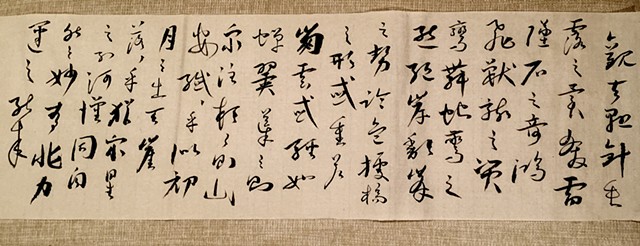 觀夫懸針垂
露之異奔雷
墜石之奇鴻
飛獸駭之資
鸞舞蛇驚之
態絕岸頹峰
之勢臨危據槁
之形或重若
崩雲或輕如
蟬翼導之則
泉注頓之則山
安纖々乎似初
月之出天崖
落々乎猶眾星
之列河漢同自
然之妙有非力
運之能成